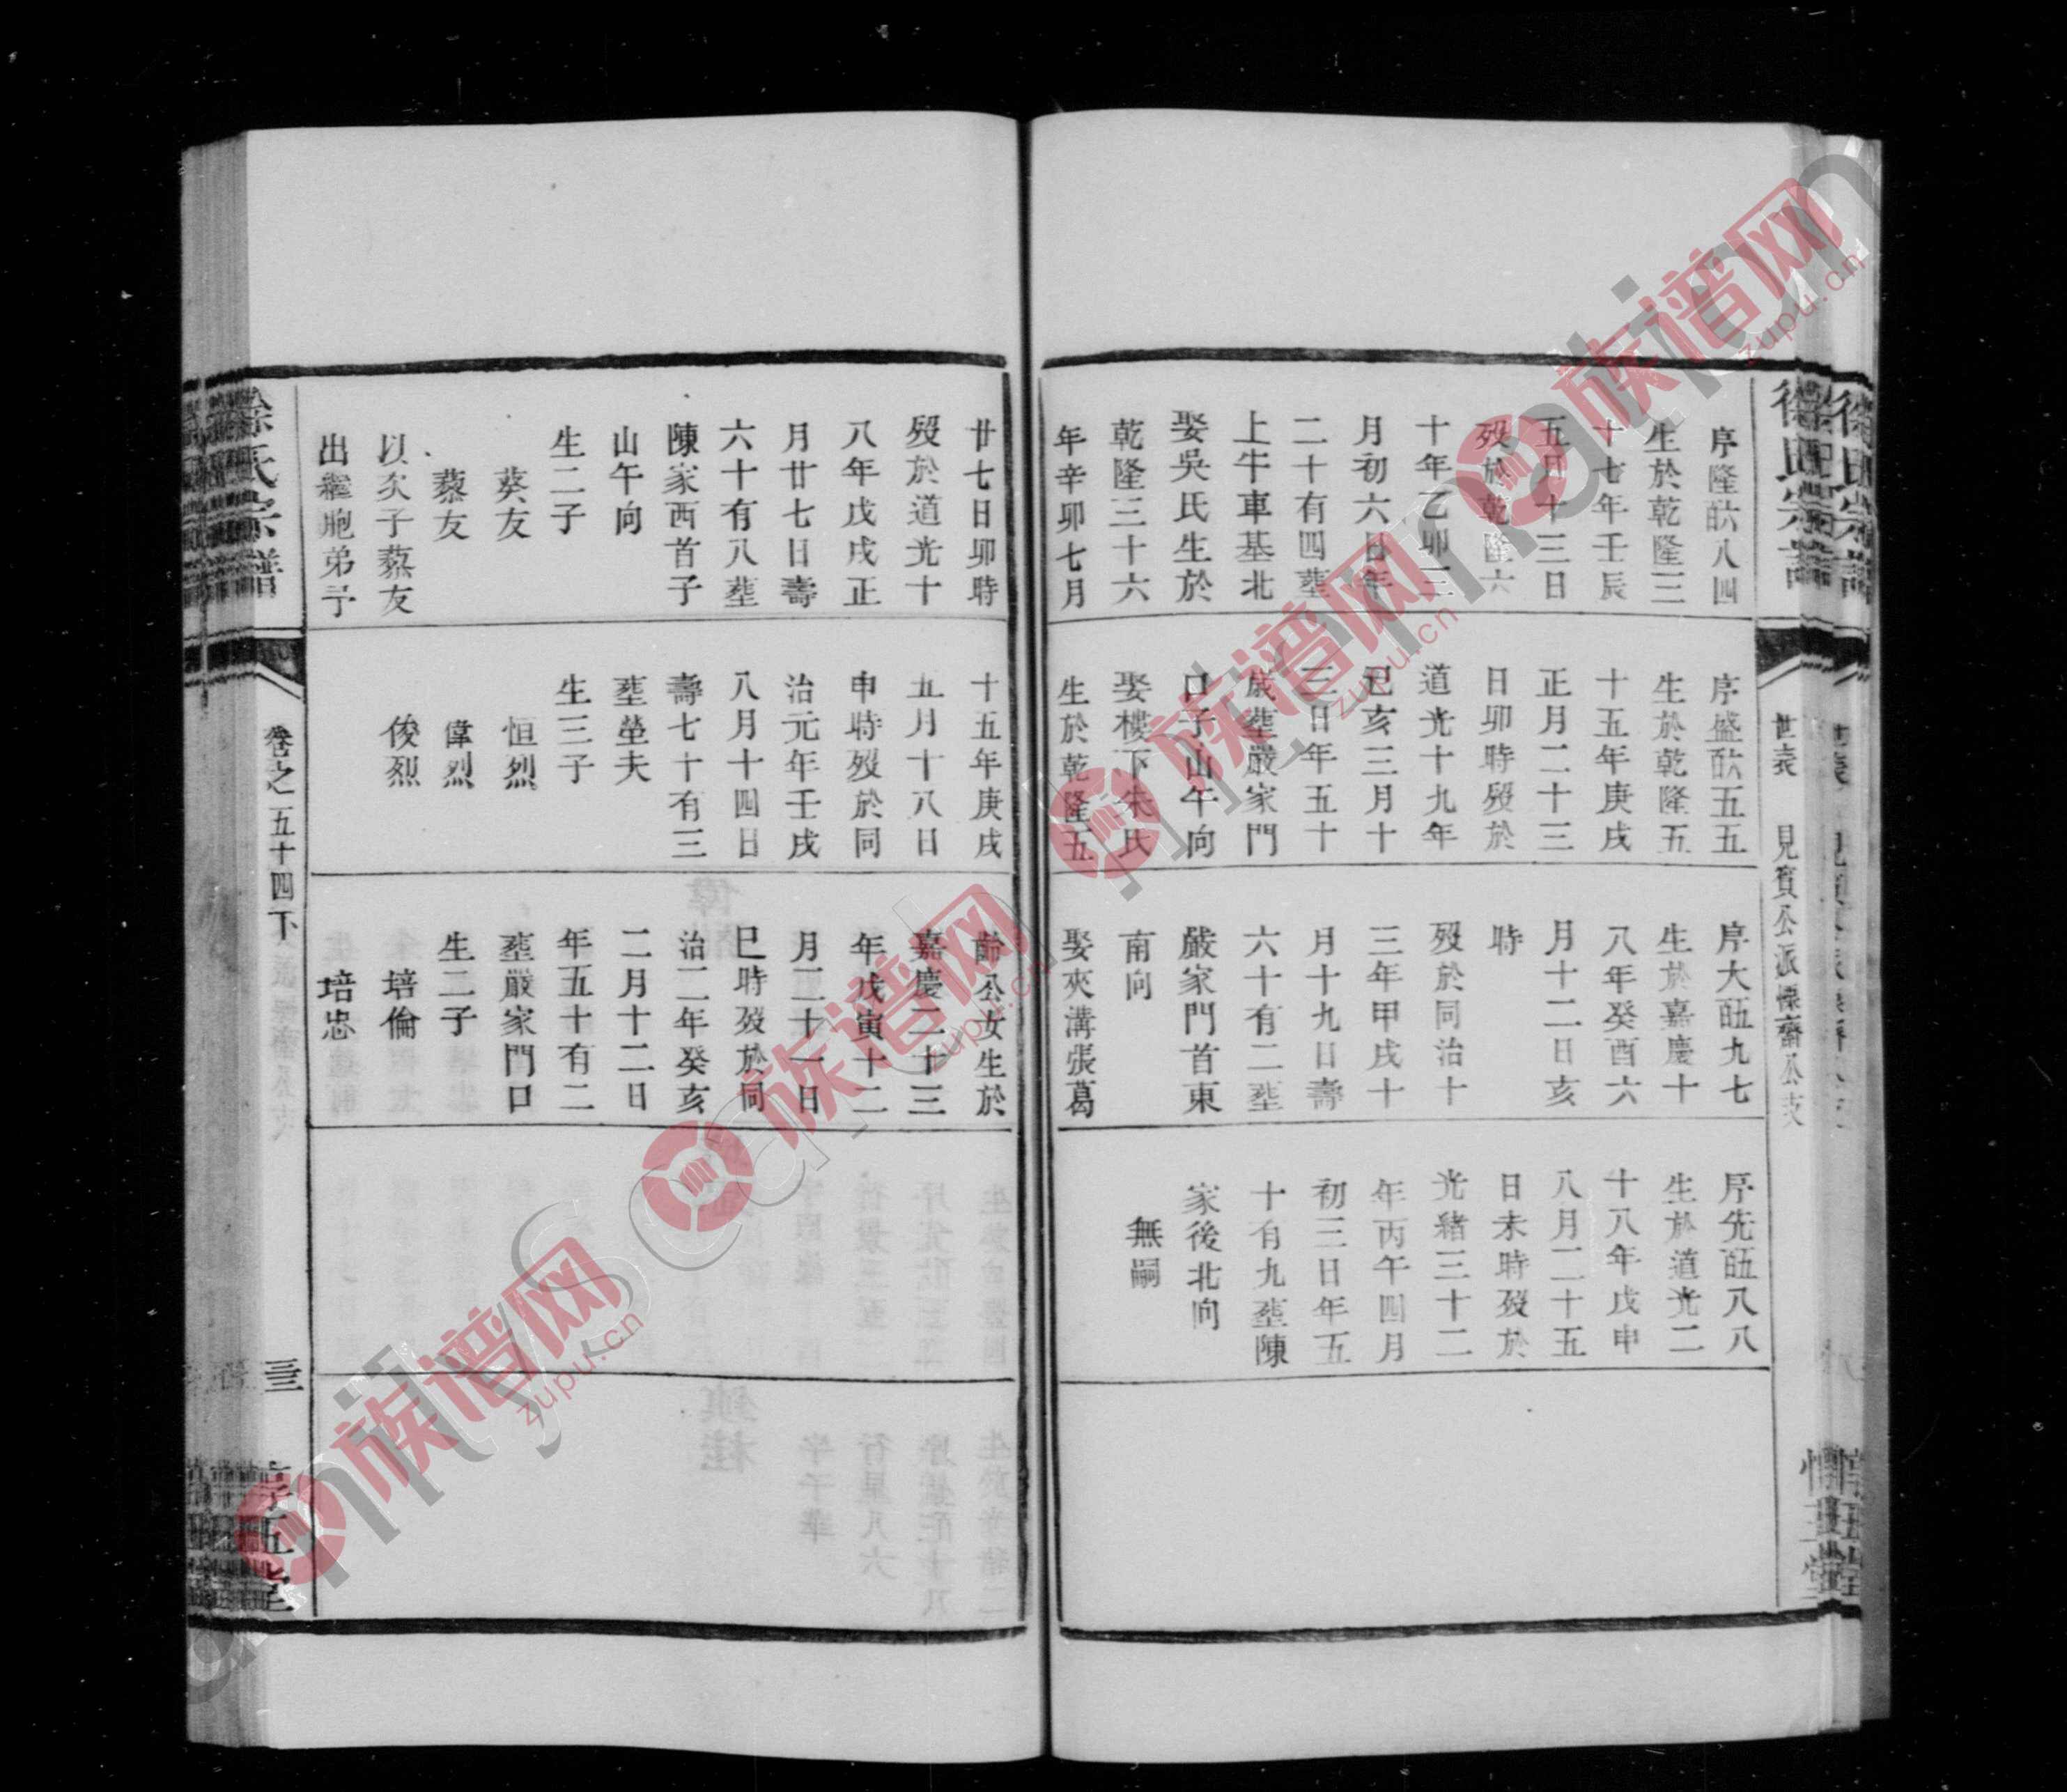 徐氏宗譜
世表
見賓公派慄齋公支
惇五堂
序隆䣺八四
生於乾隆三
十七年壬辰
五月十三日
歿於乾隆六
十年乙卯三
月初六日年
二十有四塟
上牛車基北
娶吳氏生於
乾隆三十六
年辛卯七月
廿七日卯時
歿於道光十
八年戊戌正
月廿七日壽
六十有八塟
陳家西首子
山午向
生二子
葵友
藜友
以次子藜友
出繼胞弟予
序盛䣺五五
生於乾隆五
十五年庚戌
正月二十三
日卯時歿於
道光十九年
己亥三月十
三日年五十
歲塟嚴家門
口子山午向
娶樓下朱氏
生於乾隆五
十五年庚戌
五月十八日
申時歿於同
治元年壬戌
八月十四日
壽七十有三
塟塋夫
生三子
恒烈
偉烈
俊烈
序大䣊九七
生於嘉慶十
八年癸酉六
月十二日亥
時
歿於同治十
三年甲戌十
月十九日壽
六十有二塟
嚴家門首東
南向
娶夾溝張葛
齡公女生於
嘉慶二十三
年戊寅十二
月二十一日
巳時歿於同
治二年癸亥
二月十二日
年五十有二
塟嚴家門口
生二子
培倫
培忠
序先䣊八八
生於道光二
十八年戊申
八月二十五
日未時歿於
光緒三十二
年丙午四月
初三日年五
十有九塟陳
家後北向
無嗣
徐氏宗譜
卷之五十四下
三三
惇五堂
族谱网
zupu.cn